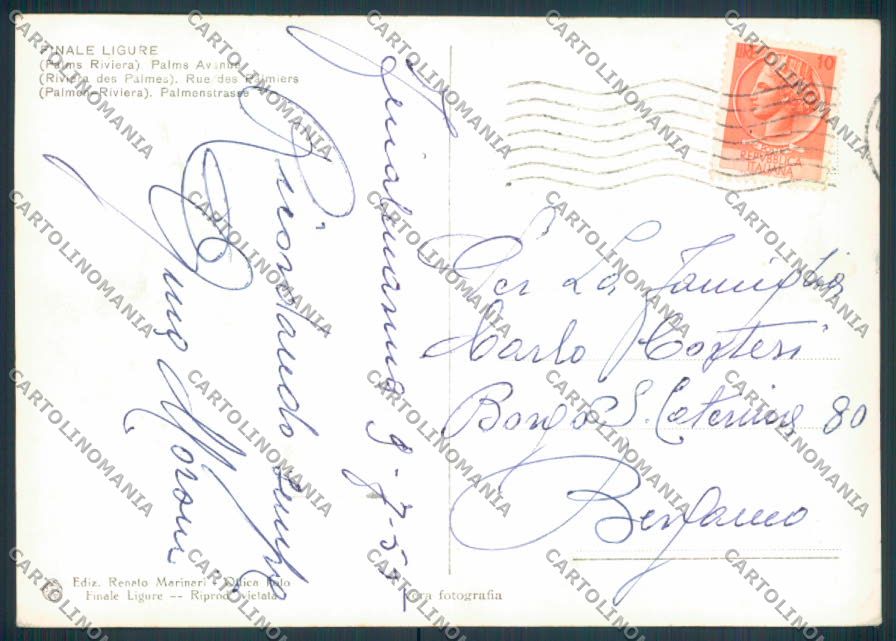 FINALE LIGURE
(Palms Riviera). Palms Avenue
(Riviera des Palmes). Rue des Palmiers
(Palmen-Riviera). Palmenstrasse
LIRE 10
REPUBBLICA
ITALIANA
9-7-55
Ricordando sempre
Moroni
Per La Famiglia
Carlo Cortesi
Borgo S. Caterina 80
Bergamo
Ediz. Renato Marinari - Ottica Foto
Finale Ligure -- Riprod. vietata
Vera fotografia
CARTOLINOMANIA